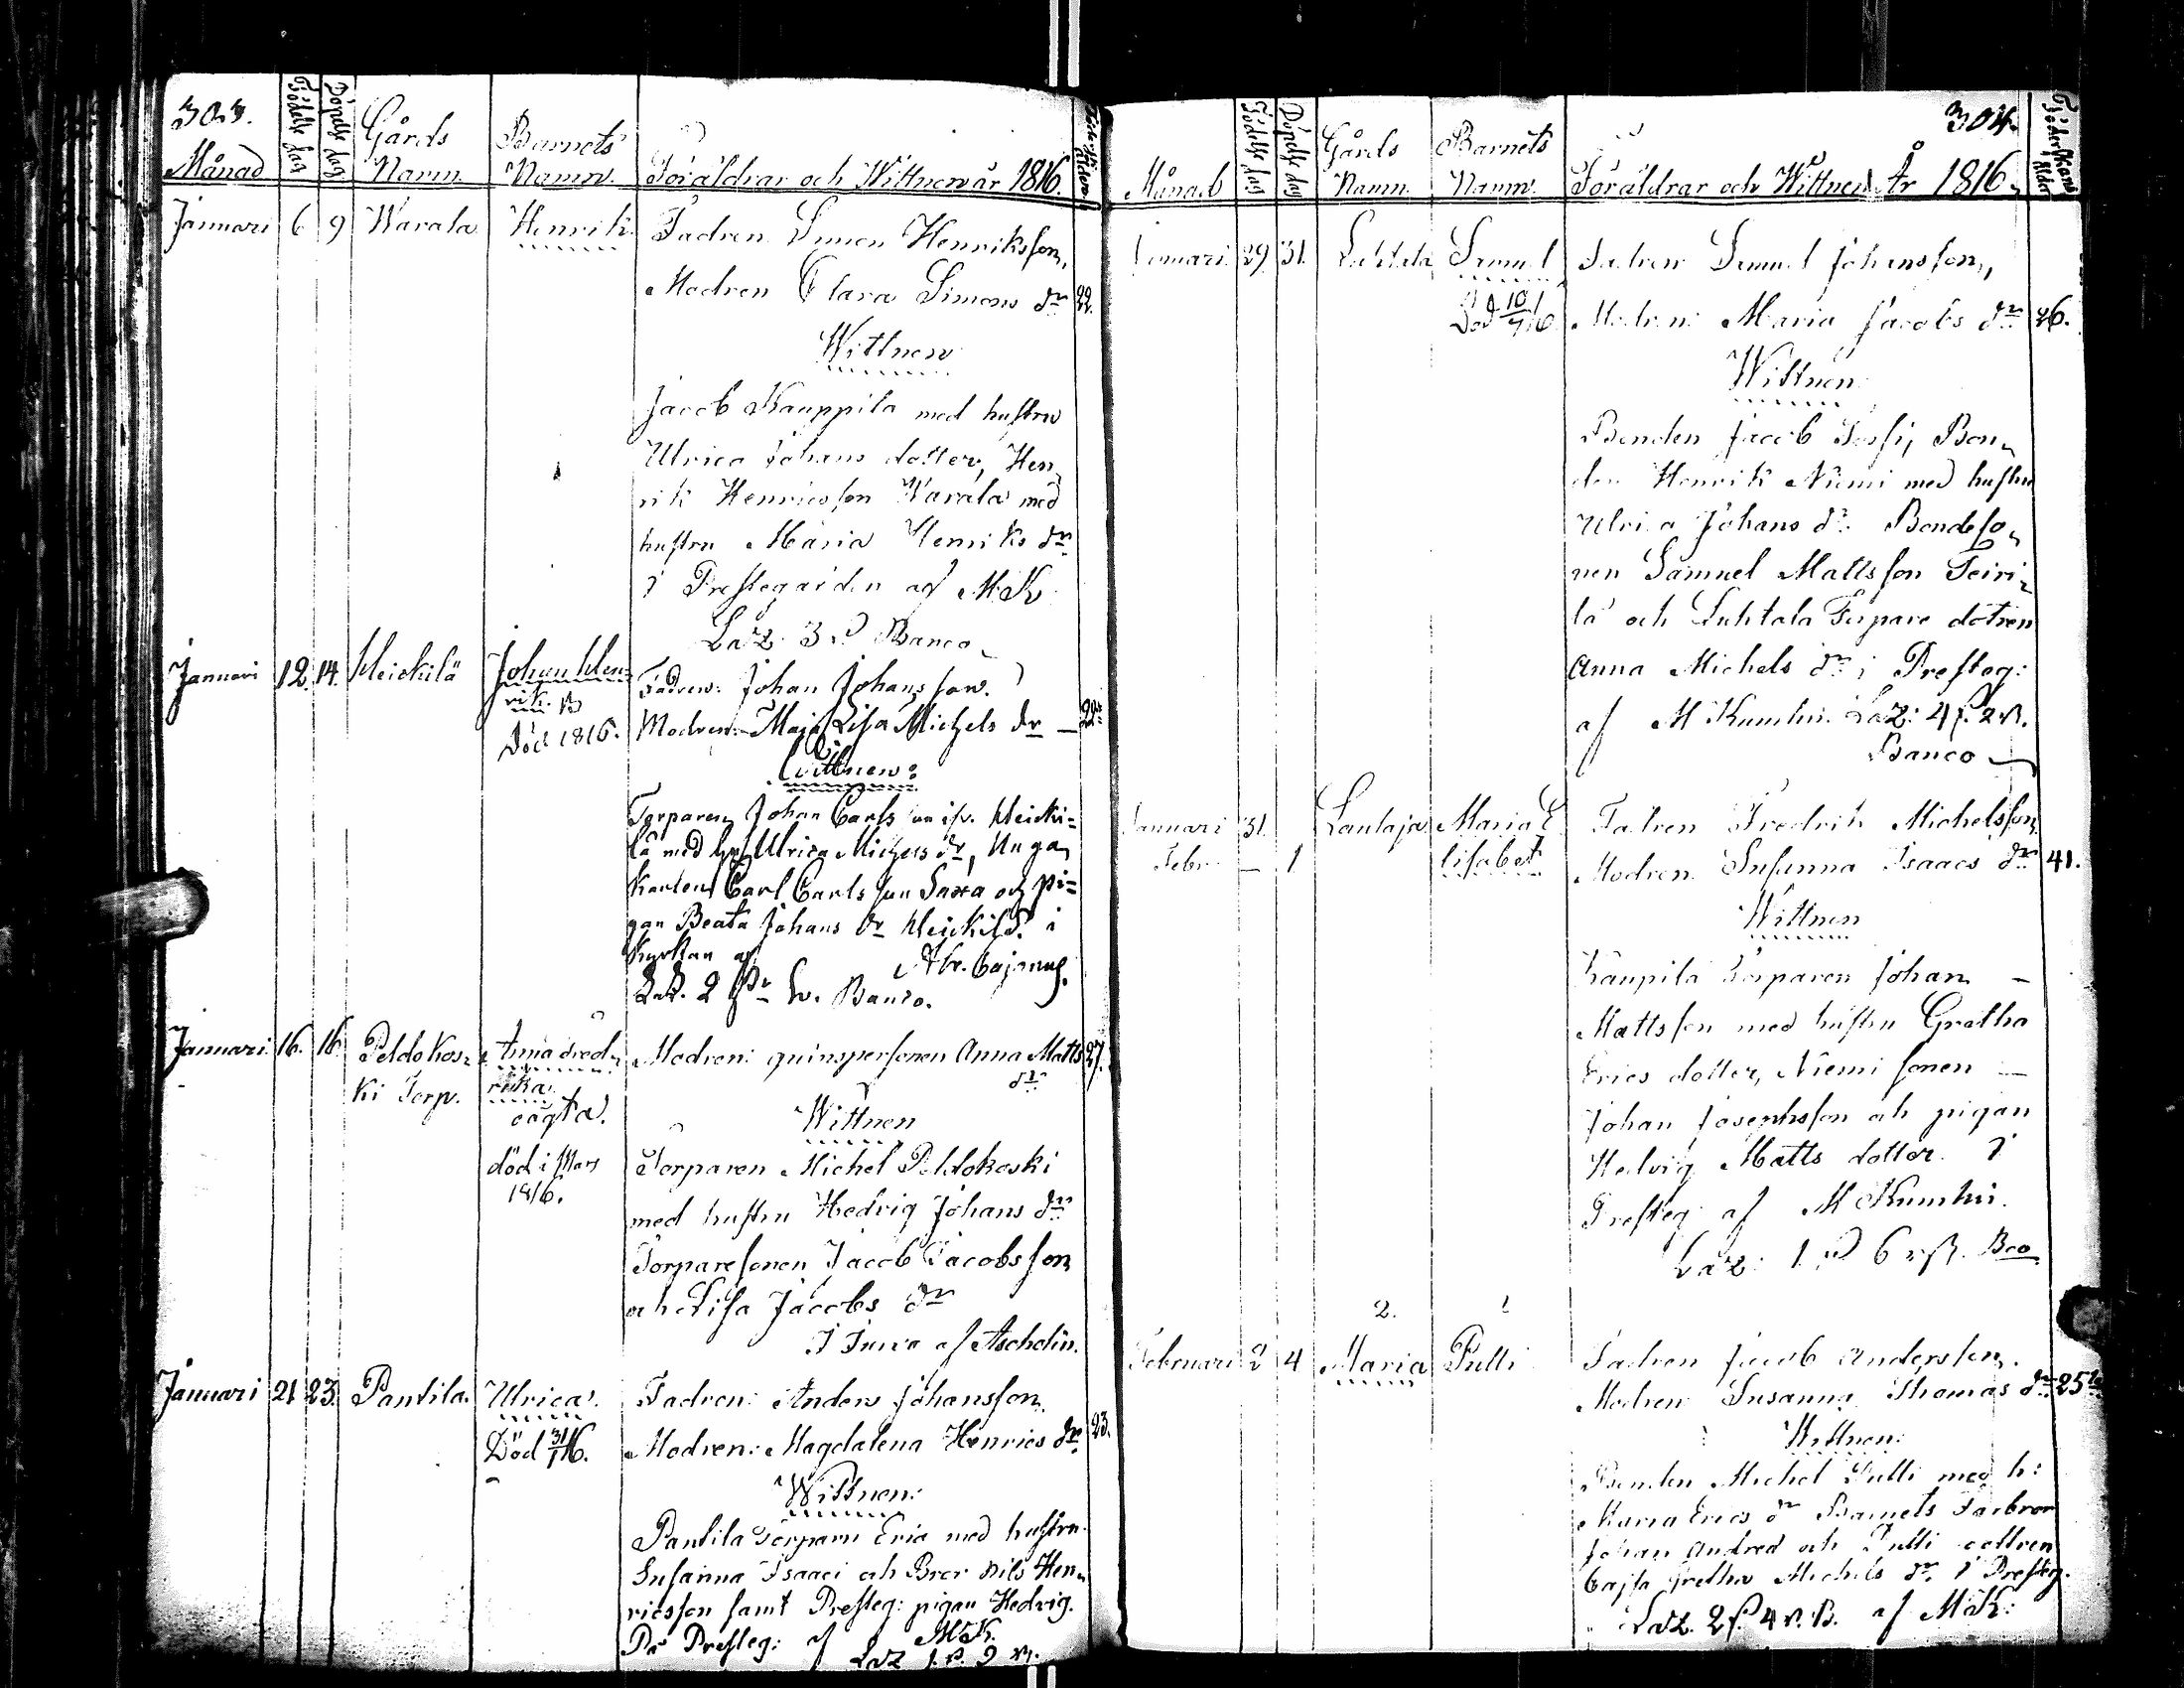 303.
Månad
Födelse dag
Döpelse dag
Gårds
Namn
Barnets
Namn.
Föräldrar och Wittnen år 1816.
Januari 6 9 Warala Henrik Fadren Simon Henriksson,
Modren Clara Simons dr 22.
Wittnen
Jacob Kauppila med hustru
Ulrica Johans dotter, Hen
rik Henricsson Warala med
hustru Maria Henriks dr
i Prestegården af M.K.
Laz. 3 Banco
Januari 12. 14. Heickilä Johan Hen=
rik
Död 1816.
Fadren: Johan Johansson.
Modren: Maja Lisa Michels dr
Wittnen:
Torparen Johan Carlsson Heicki=
lä med Ulrica Michels dr, Unga
Karlen Carl Carlsson Saxa och pi=
gan Beata Johans dr Heickilä i
Kyrkan af
Laz. 2 Banco.
Januari 16. 16 Peldokos
ki Torp.
Anna Fred
rika
oägta.
död i Mars
1816.
Modren: qvinspersonen Anna Matts 27.
dr
Wittnen
Torparen Michel Peldokoski
med hustru Hedvig Johans dr
Torparesonen Jacob Jacobsson
och Lisa Jacobs dr
af Aschelin.
Januari 21 23. Pantila. Ulrica.
Död 31/1 16.
Fadren: Anders Johansson.
Modren: Magdalena Henrics dr 23.
Wittnen:
Pantila Torparn Eric med hustru
Susanna Isaaci och Bror Nils Hen
ricsson samt Presteg: pigan Hedvig.
På Presteg: af M.K.
Laz
304.
Månad
Födelse dag
Döpelse dag
Gårds
Namn.
Barnets
Namn.
Föräldrar och Wittnen År 1816.
Januari 29. 31. Luhtala Samuel
Fadren Samuel Johansson,
Modren: Maria Jacobs dr 26.
Wittnen
Bonden Jacob Bon
den Henrik Niemi med hustru
Ulrica Johans dr Bondeso
nen Samuel Mattsson Teiri
lä och Luhtala Torpare dotren
Anna Michels dr i Presteg:
af M Kumlin. Laz:
Banco
Januari 31.
Febr — 1
Lantaja Maria E
lisabet
Fadren Fredrik Michelsson
Modren Susanna Isaacs dr 41.
Wittnen
Kaupila Torparen Johan —
Mattsson med hustru Gretha
Erics dotter, Niemi sonen —
Johan Josephsson och pigan
Hedvig Matts dotter i
Presteg af M Kumlin.
Laz: 1 6 Bco
2. 1
Februari 2 4 Maria Pulli
Fadren Jacob Andersson.
Modren Susanna Thomas dr 25
Wittnen:
Bonden Michel Pulli med h:
Maria Erics dr Barnets Farbror
Johan Andred och Pulli dottren
Cajsa Gretha Michels dr i Presteg.
Laz. af M.K: